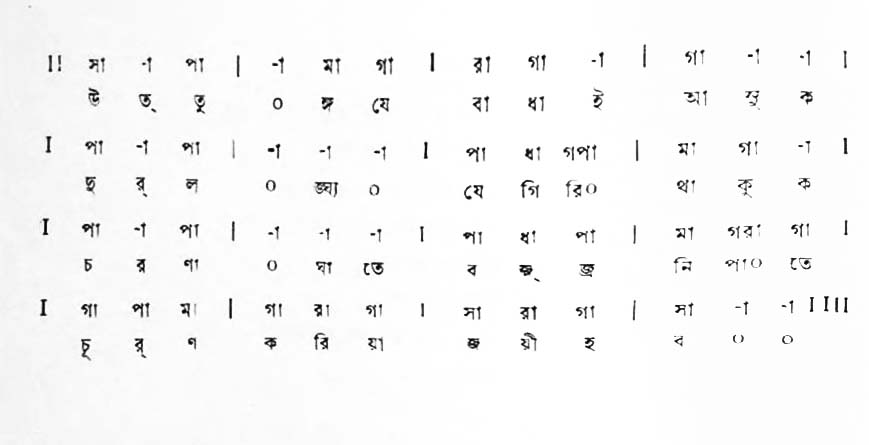 II সা -া পা | -া মা গা I রা গা -া | গা -া -া I
উ ত্ তু ০ ঙ্গ যে বা ধা ই আ সু ক
I পা -া পা | -া -া -া I পা ধা গপা | মা গা -া I
দু র্ ল ০ ঙ্ঘ্য ০ যে গি রি০ থা কু ক
I পা -া পা | -া -া -া I পা ধা পা | মা গরা গা I
চ র ণা ০ ঘা তে ব জ্ জ্র নি পা০ তে
I গা পা মা | গা রা গা I সা রা গা | সা -া -া I III
চূ র্ ণ ক রি য়া জ য়ী হ ব ০ ০